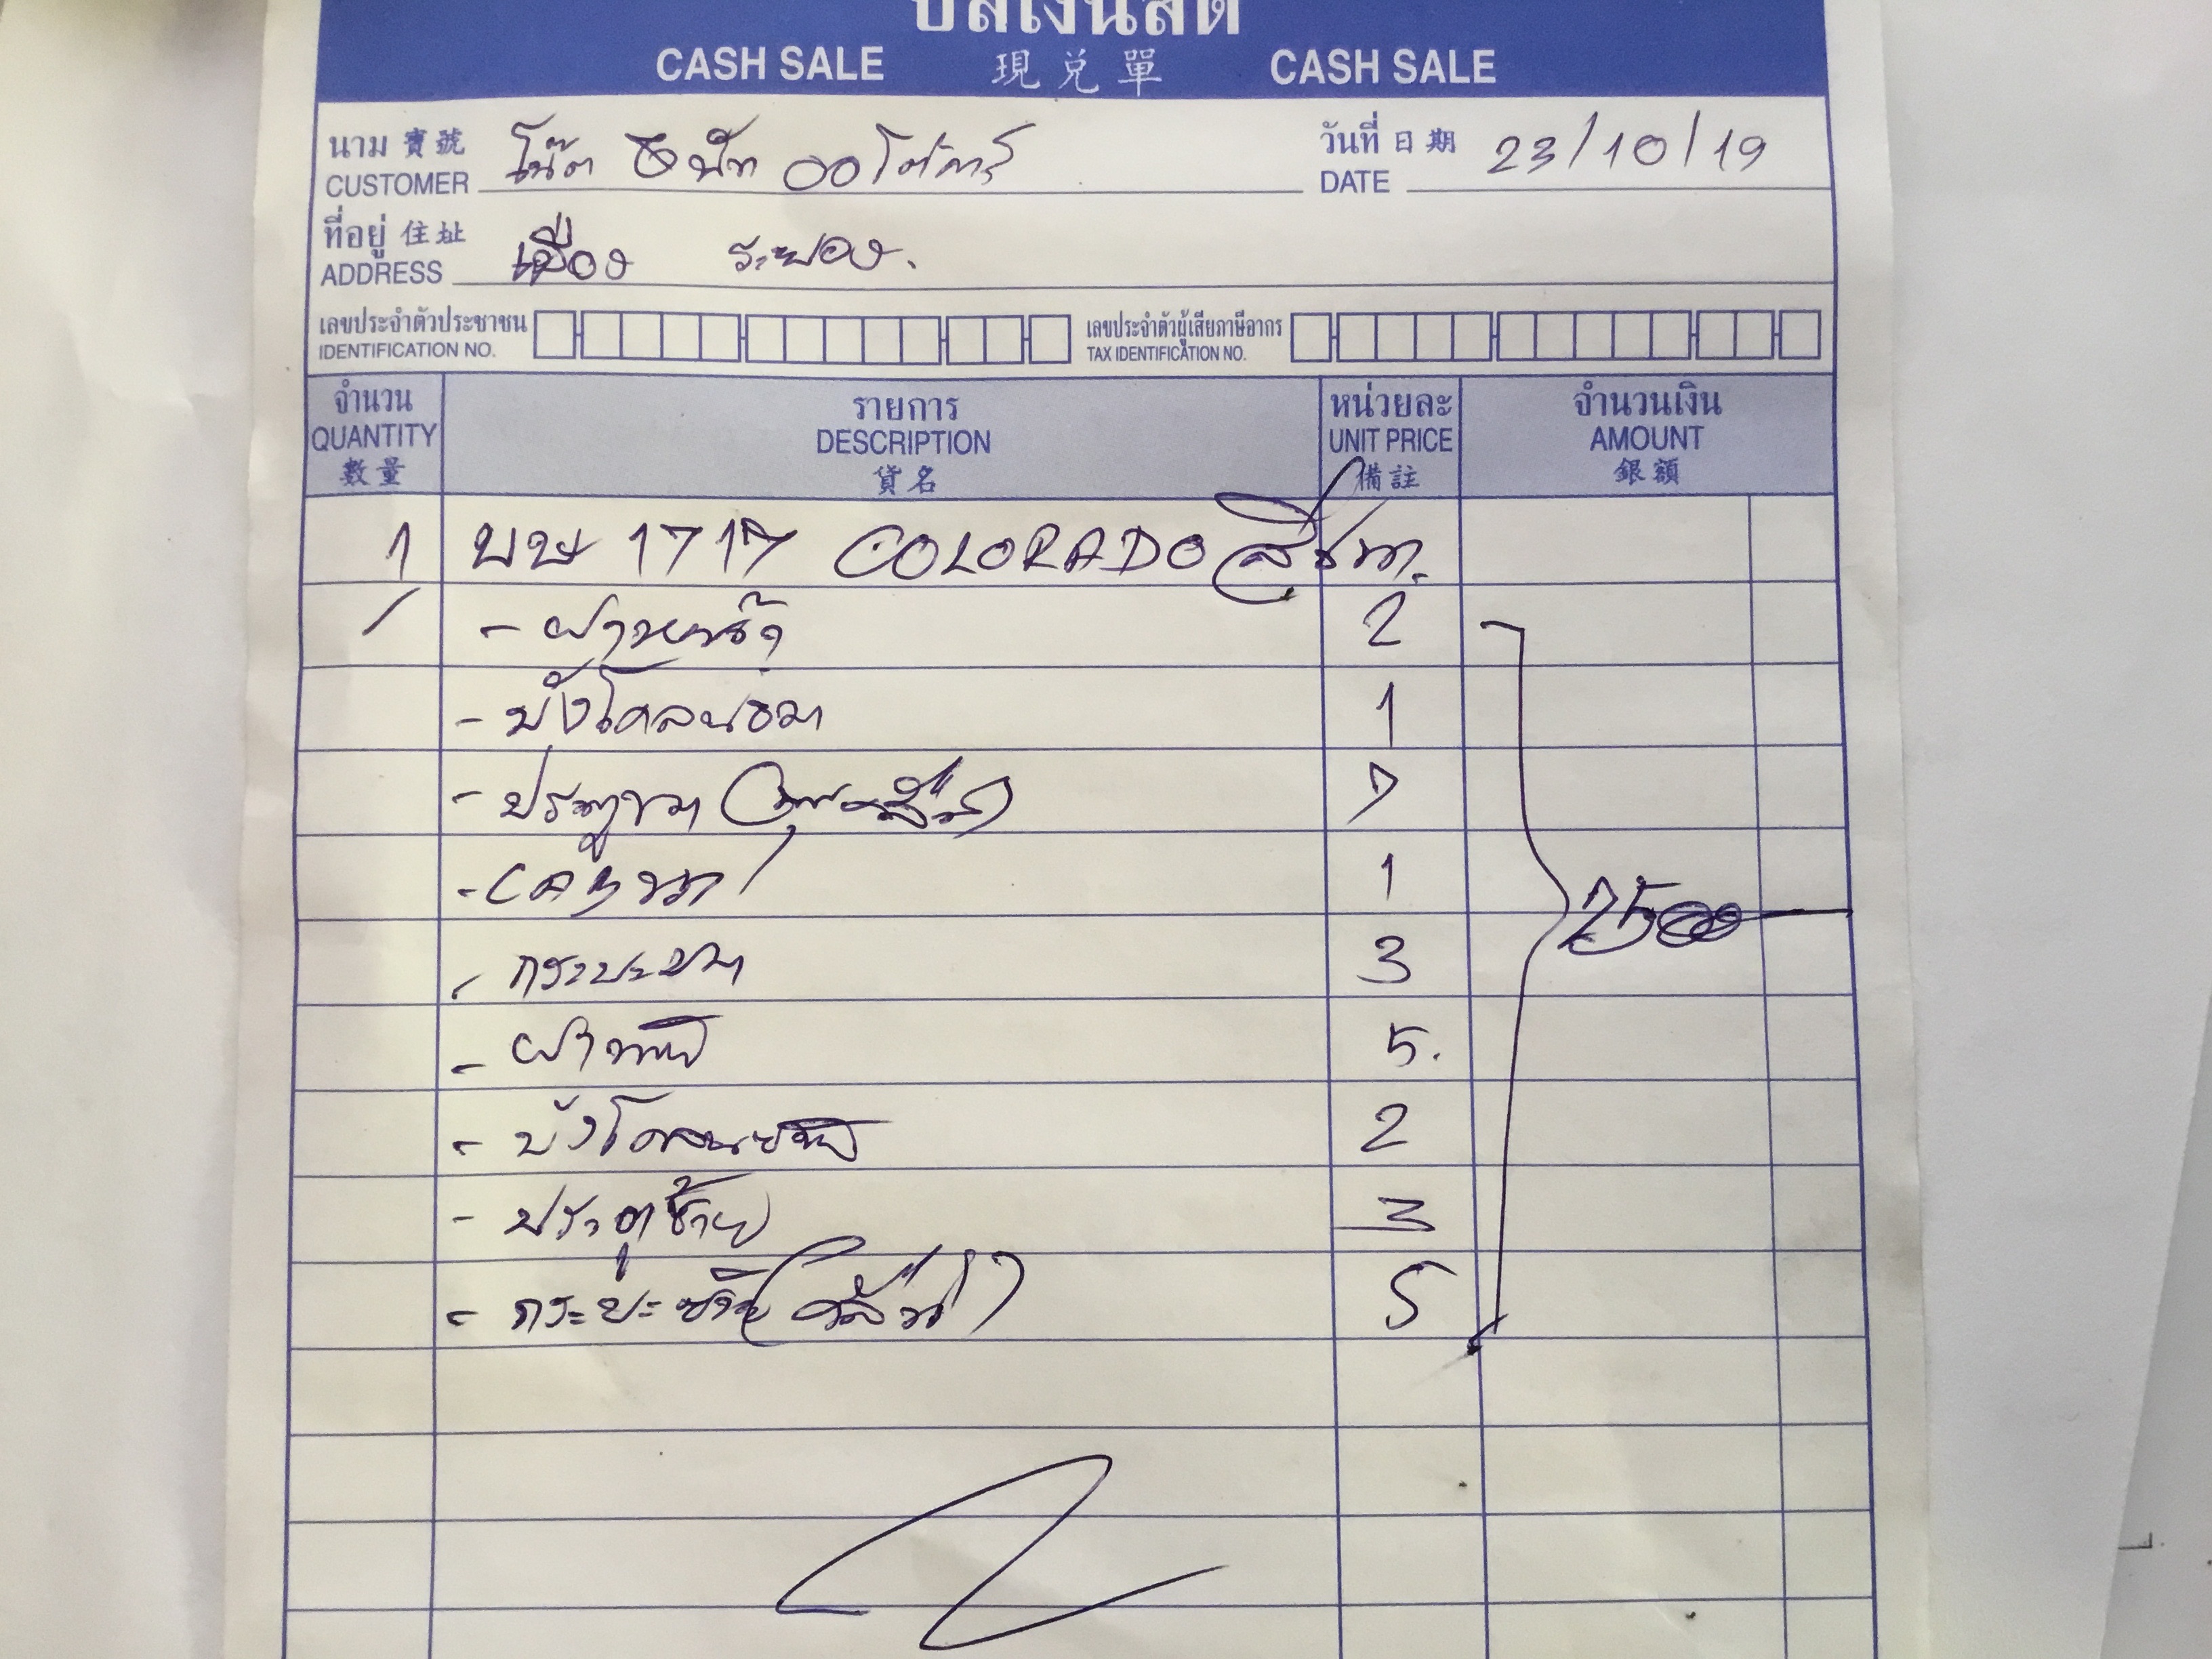 บิลเงินสด
CASH SALE 現兌單 CASH SALE
นาม 寶號 วันที่ 日期
CUSTOMER โน๊ต DATE 23/10/19
ที่อยู่ 住址
ADDRESS เมือง ระยอง.
เลขประจำตัวประชาชน เลขประจำตัวผู้เสียภาษีอากร
IDENTIFICATION NO. TAX IDENTIFICATION NO.
จำนวน รายการ หน่วยละ จำนวนเงิน
QUANTITY DESCRIPTION UNIT PRICE AMOUNT
數量 貨名 備註 銀額
1 บษ 1717 COLORADO
/ - ฝาหน้า 2
- บังโคลนขวา 1
- ประตูขวา
- CAB ขวา 1
2500
- กระบะขวา 3
- ฝาท้าย 5.
- บังโคลนซ้าย 2
- ประตูซ้าย 3
- กระบะซ้าย 5